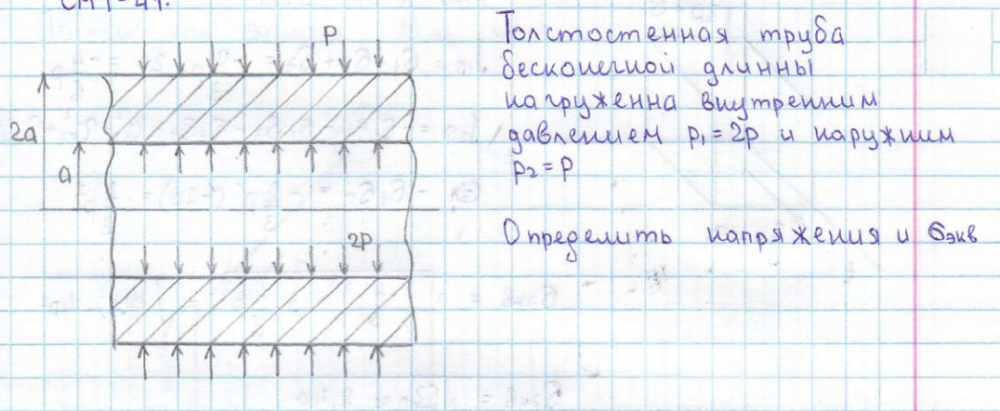 P
Толстостенная труба
бесконечной длинны
нагруженна внутренним
2a
давлением p₁=2p и наружним
a
p₂=p
2P
Определить напряжения и σэкв